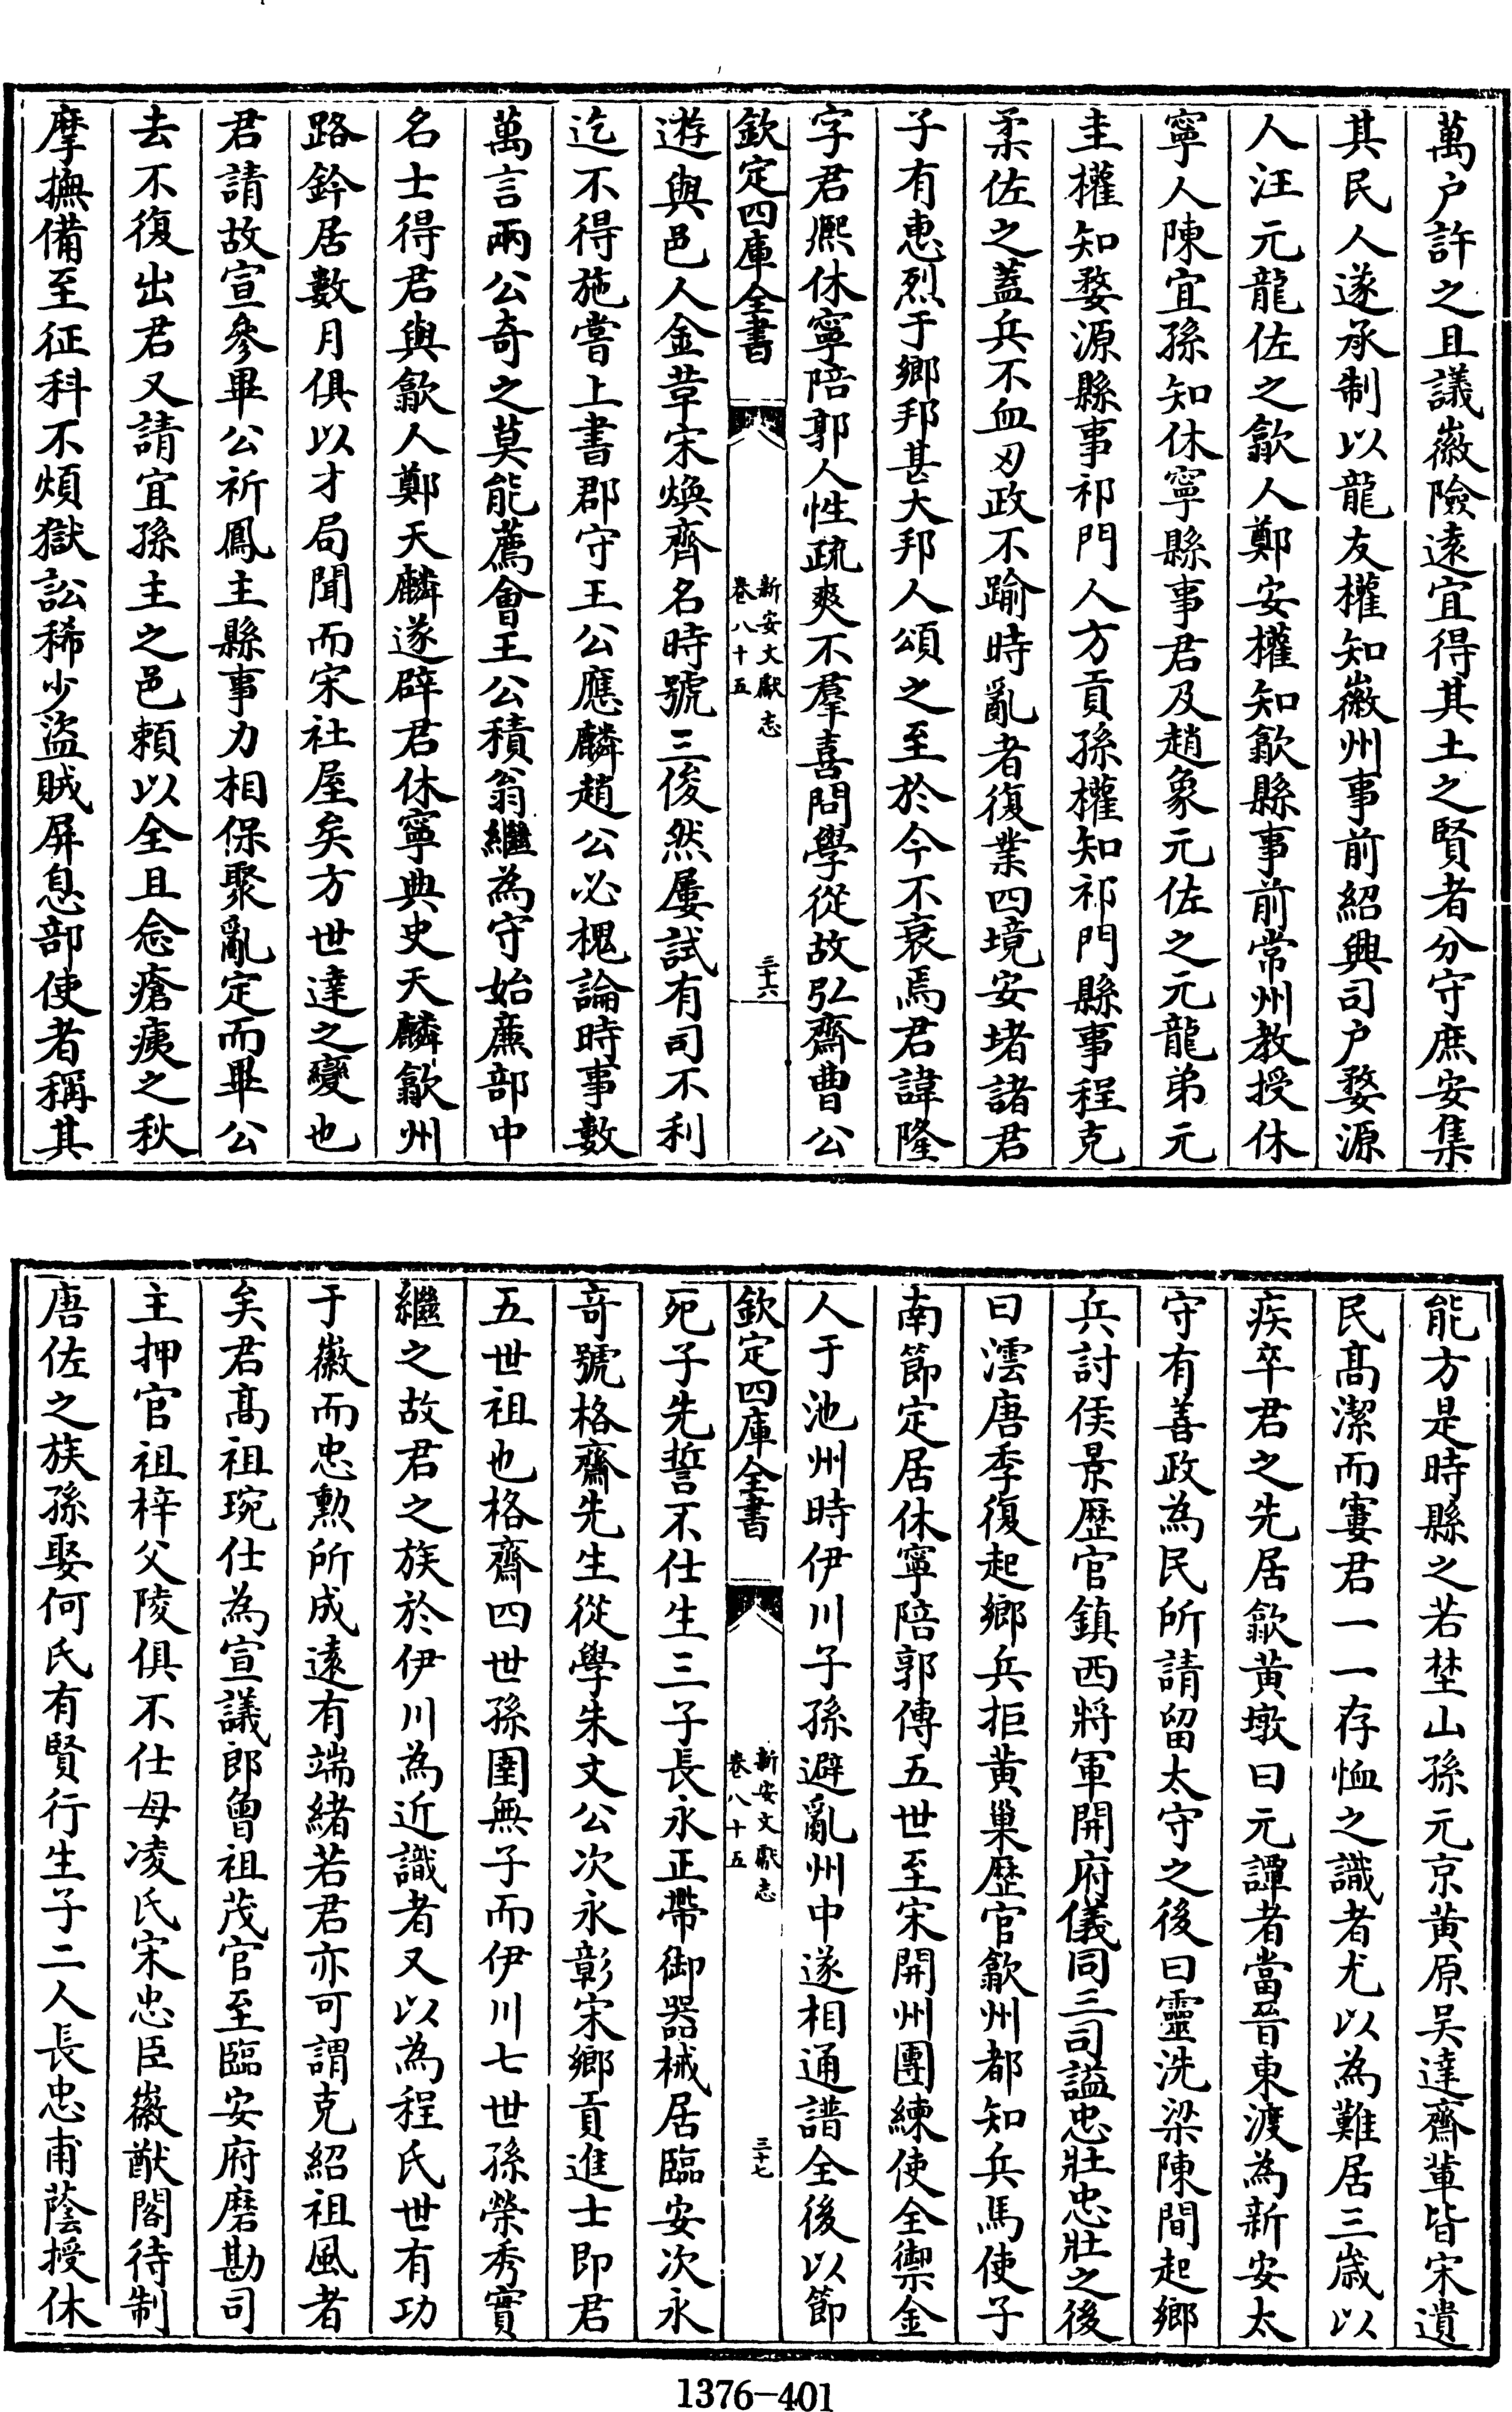 萬户許之且議徽險逺宜得其土之賢者分守庶安集
其民人遂承制以龍友權知徽州事前紹興司户婺源
人汪元龍佐之歙人鄭安權知歙縣事前常州教授休
寧人陳宜孫知休寧縣事君及趙象元佐之元龍弟元
圭權知婺源縣事祁門人方貢孫權知祁門縣事程克
柔佐之蓋兵不血刃政不踰時亂者復業四境安堵諸君
子有惠烈于鄉邦甚大邦人頌之至於今不衰焉君諱隆
字君熈休寧陪郭人性疏爽不羣喜問學從故弘齋曹公
欽定四庫全書
新安文獻志
卷八十五
三十六
遊與邑人金革宋煥齊名時號三俊然屢試有司不利
迄不得施嘗上書郡守王公應麟趙公必槐論時事數
萬言兩公奇之莫能薦會王公積翁繼為守始薦部中
名士得君與歙人鄭天麟遂辟君休寧典史天麟歙州
路鈐居數月俱以才局聞而宋社屋矣方世達之變也
君請故宣參畢公祈鳳主縣事力相保聚亂定而畢公
去不復出君又請宜孫主之邑頼以全且念瘡痍之秋
摩撫備至征科不煩獄訟稀少盜賊屏息部使者稱其
能方是時縣之若埜山孫元京黄原吴達齋輩皆宋遺
民髙潔而寠君一一存恤之識者尤以為難居三歳以
疾卒君之先居歙黄墩曰元譚者當晉東渡為新安太
守有善政為民所請留太守之後曰靈洗梁陳間起鄉
兵討侯景歴官鎮西將軍開府儀同三司諡忠壯忠壯之後
曰澐唐季復起鄉兵拒黄巢歴官歙州都知兵馬使子
南節定居休寧陪郭傳五世至宋開州團練使全禦金
人于池州時伊川子孫避亂州中遂相通譜全後以節
欽定四庫全書
新安文獻志
卷八十五
三十七
死子先誓不仕生三子長永正帶御器械居臨安次永
奇號格齋先生從學朱文公次永彰宋鄉貢進士即君
五世祖也格齋四世孫圍無子而伊川七世孫榮秀實
繼之故君之族於伊川為近識者又以為程氏世有功
于徽而忠勲所成逺有端緒若君亦可謂克紹祖風者
矣君髙祖琬仕為宣議郎曾祖茂官至臨安府磨勘司
主押官祖梓父陵俱不仕母凌氏宋忠臣徽猷閣待制
唐佐之族孫娶何氏有賢行生子二人長忠甫蔭授休
1376-401